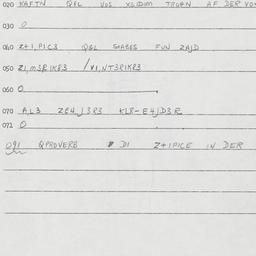 020 KAFTN QFL VOS XLIDIM TROGN AF DER VOS
030 0
040 Z+1, PIC3 Q&L SHABES FUN ZAJD
050 Z1,M3RIKB3 /V1,NT3RIKR3
060 0
070 A,L3 ZE4J3R3 KLR-E4JD3R
071 0
091 QPROVERB # DI Z+IPICE IN DER